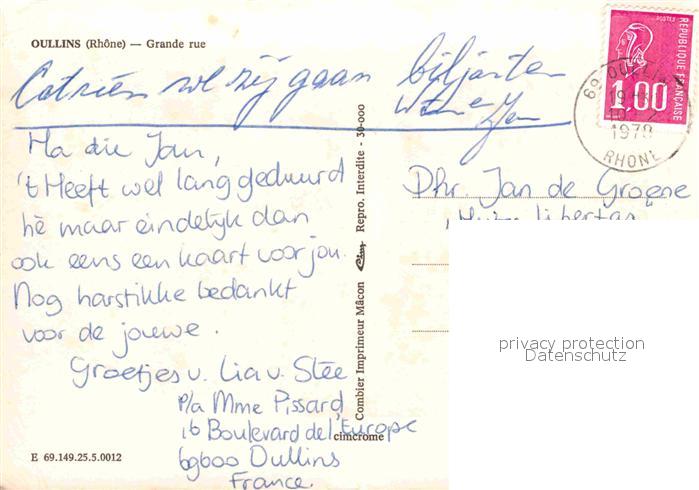 OULLINS (Rhône) — Grande rue
zij gaan biljarten
Ha die Jan,
't Heeft wel lang geduurd
hè maar eindelijk dan
ook eens een kaart voor jou.
Nog harstikke bedankt
voor de jouwe.
Groetjes v. Lia v. Stée
p/a Mme Pissard
16 Boulevard de l'Europe
69600 Oullins
France.
E 69.149.25.5.0012
Combier Imprimeur Mâcon Cim Repro. Interdite - 30-000
cimcrome
POSTES
RÉPUBLIQUE FRANÇAISE
1,00
69 OULLINS
1978
RHONE
Dhr. Jan de Groene
libertas
privacy protection
Datenschutz